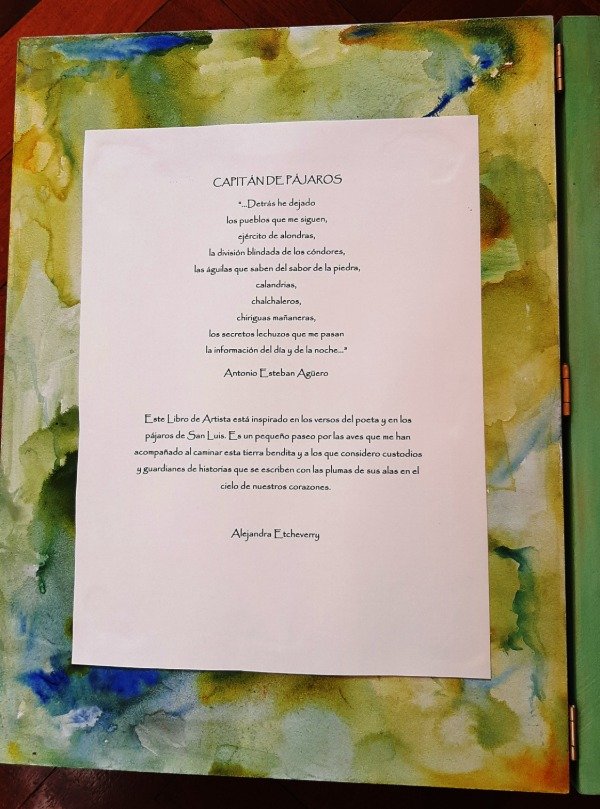 CAPITÁN DE PÁJAROS
"...Detrás he dejado
los pueblos que me siguen,
ejército de alondras,
la división blindada de los cóndores,
las águilas que saben del sabor de la piedra,
calandrias,
chalchaleros,
chiriguas mañaneras,
los secretos lechuzos que me pasan
la información del día y de la noche..."
Antonio Esteban Agüero
Este Libro de Artista está inspirado en los versos del poeta y en los
pájaros de San Luis. Es un pequeño paseo por las aves que me han
acompañado al caminar esta tierra bendita y a los que considero custodios
y guardianes de historias que se escriben con las plumas de sus alas en el
cielo de nuestros corazones.
Alejandra Etcheverry